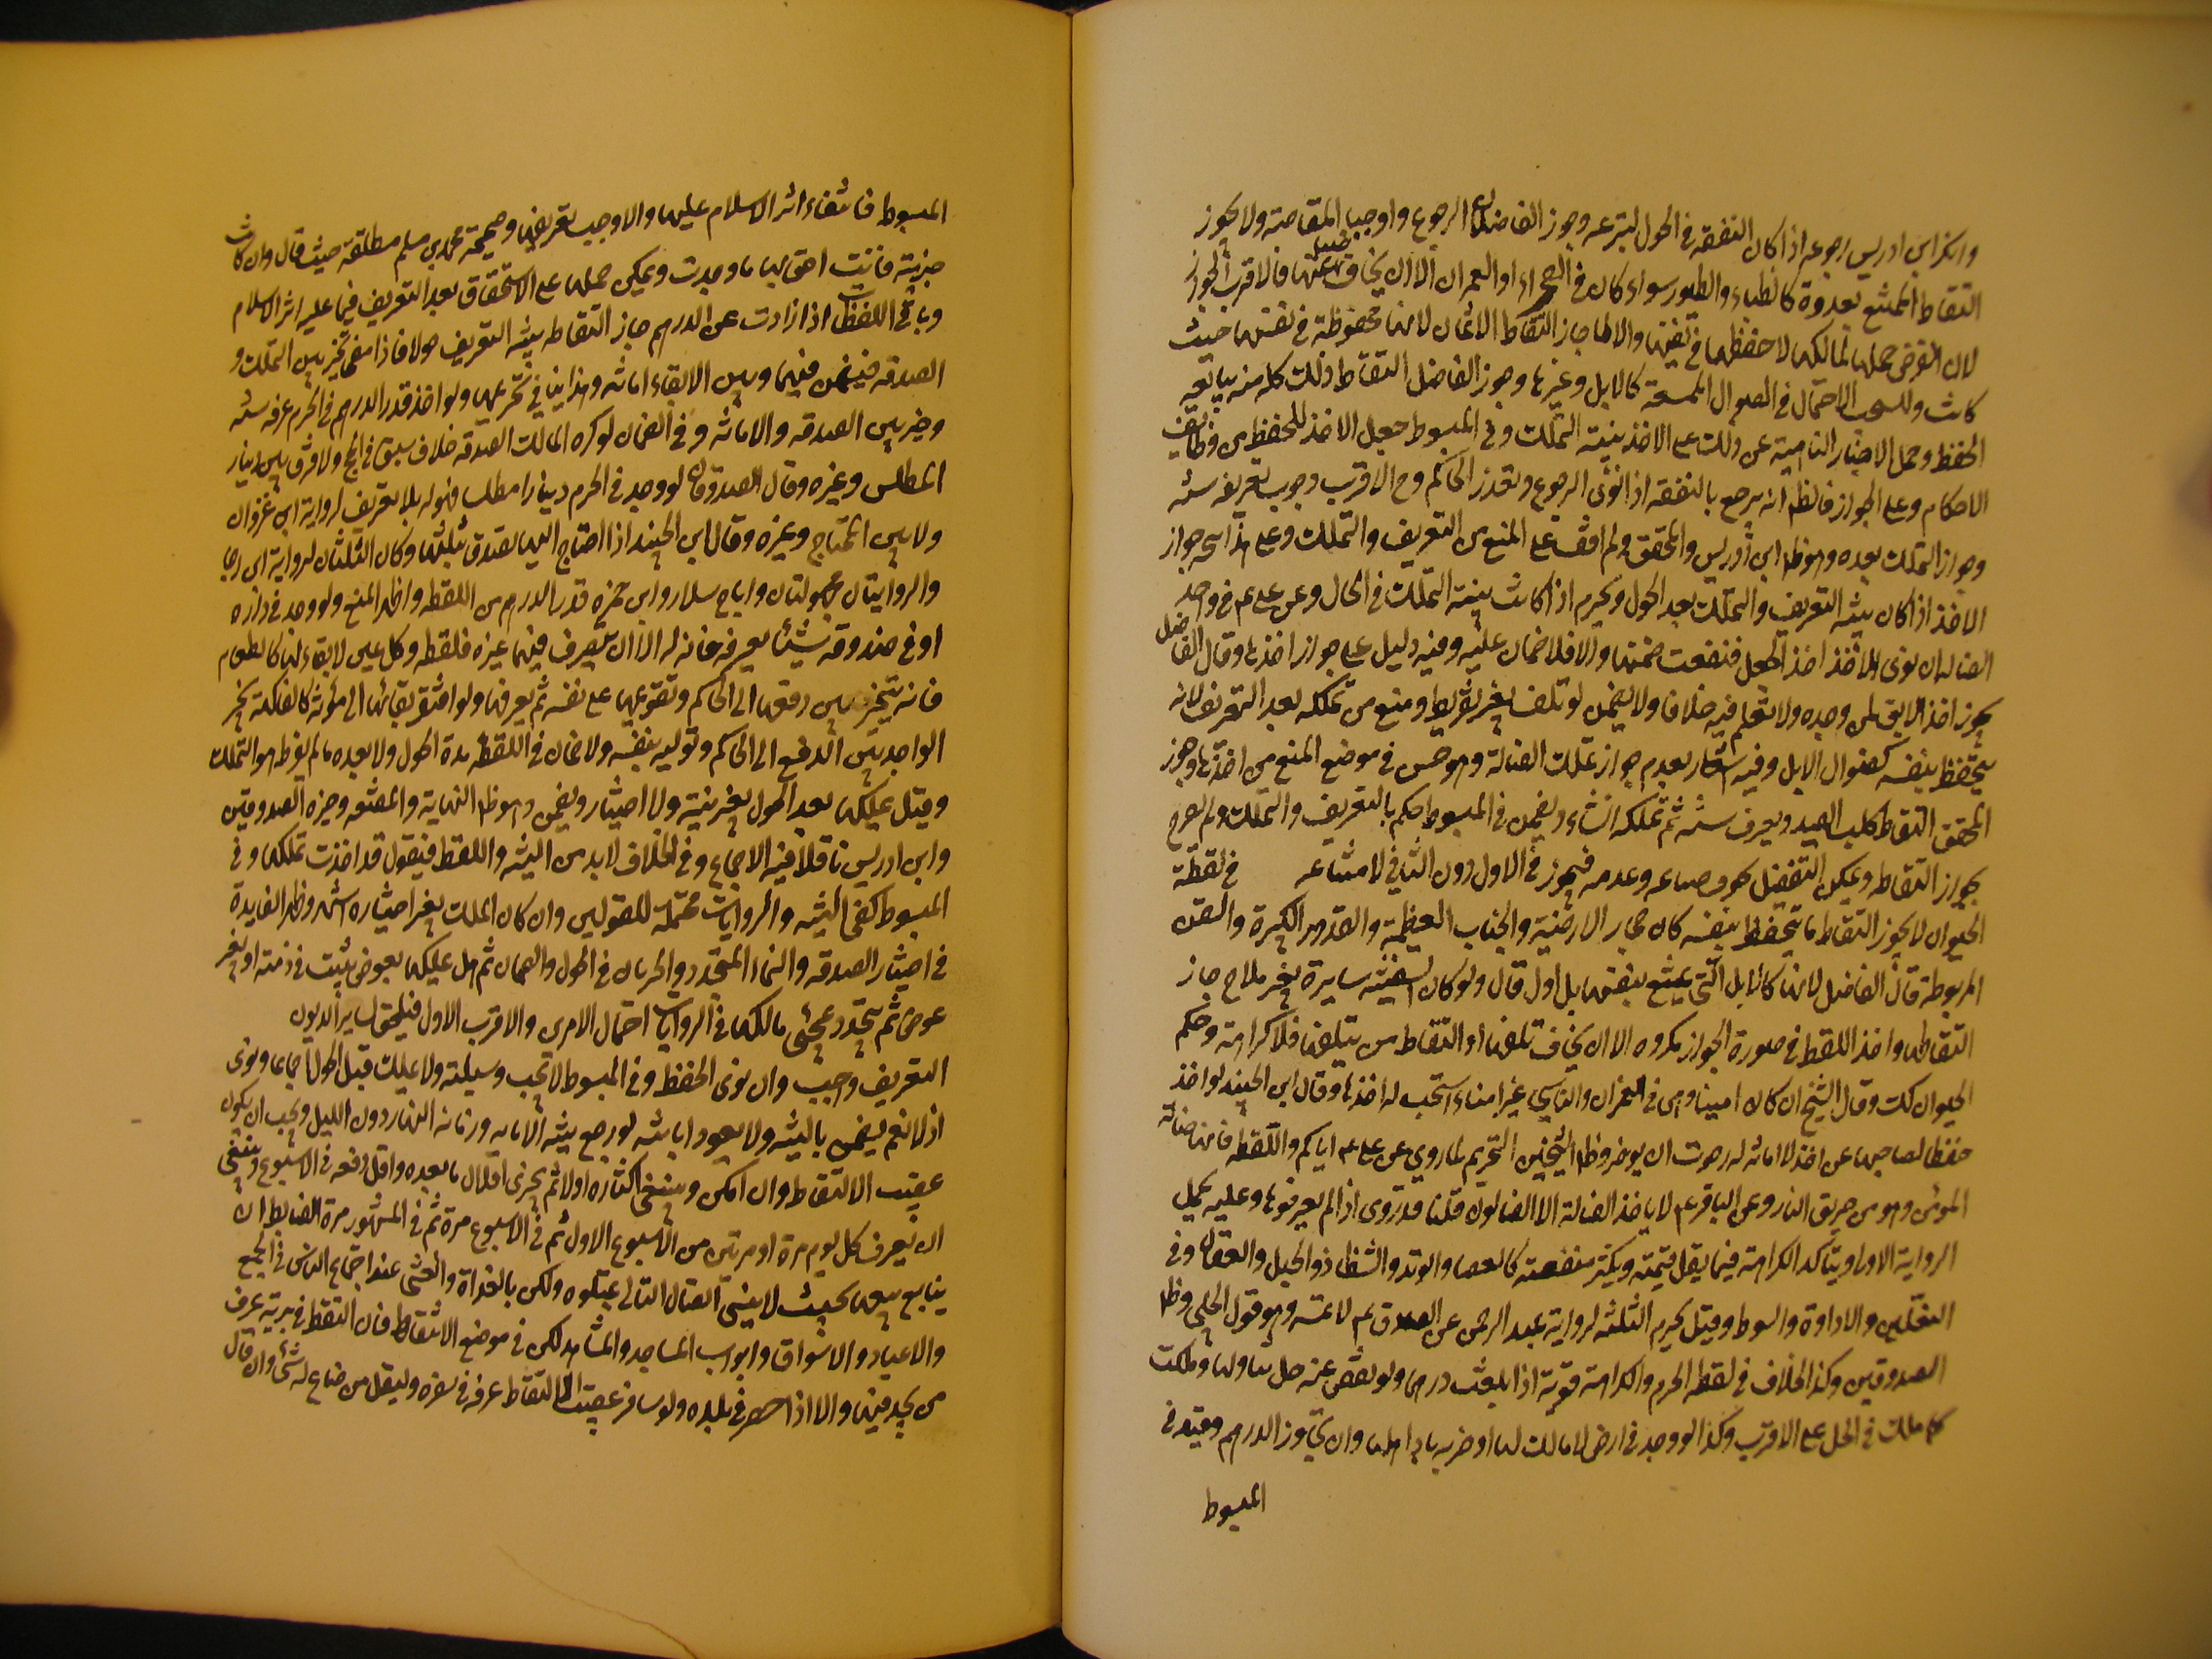 وانكر ابن ادريس رجوعه اذا كان النفقة في الحول لتبرعه وجوز الفاضلان الرجوع واوجبا المقاصة ولا يجوز
التقاط الممتنع بعدوه كالظباء والطيور سواء كان في الصحراء او العمران الا ان يخاف ضيعتها فالاقرب الجواز
لان الغرض حفظها لمالكها لا حفظها في نفسها والا لما جاز التقاط الاثمان لانها محفوظة في نفسها حيث
كانت وينسحب الاحتمال في الضوال الممتنعة كالابل وغيرها وجوز الفاضل التقاط ذلك كله بنية
الحفظ وحمل الاخبار الناهية عن ذلك على الاخذ بنية التملك وفي المبسوط جعل الاخذ للحفظ من وظائف
الاحكام وعلى الجواز فالظاهر انه يرجع بالنفقة اذا نوى الرجوع وتعذر الحاكم وح الاقرب وجوب تعريفه سنة
وجواز التملك بعده وهو ظاهر ابن ادريس والمحقق ولم اقف على المنع من التعريف والتملك وعلى هذا يتجه جواز
الاخذ اذا كان بنية التعريف والتملك بعد الحول ويحرم اذا كانت بنية التملك في الحال وعن علي عم في واجد
الضالة ان نوى الاخذ اخذ الجعل فنفقت ضمنها والا فلا ضمان عليه وفيه دليل على جواز اخذها وقال الفاضل
يجوز اخذ الابق لمن وجده ولا نعلم فيه خلافا ولا يضمن لو تلف بغير تفريط ومنع من تملكه بعد التعريف لانه
يتحفظ بنفسه كضوال الابل وفيه اشعار بعدم جواز تملك الضالة وهو حسن في موضع المنع من اخذها وجوز
المحقق التقاط كلب الصيد ويعرف سنة ثم تملكه ان شاء ويضمن في المبسوط احكم بالتعريف والتملك ولم يصرح
بجواز التقاطه ويمكن التفصيل بخوف ضياعه وعدمه فيجوز في الاول دون الثاني لامتناعه في لقطة
الحيوان لا يجوز التقاط ما يتحفظ بنفسه كان حجار الارضية والحباب العظيمة والقدور الكبيرة والسفن
المربوطة قال الفاضل لانها كالابل التي يمتنع بنفسها بل اولى قال ولو كان السفينة سايرة بغير ملاح جاز
التقاطها واخذ اللقط في صورة الجواز مكروه الا ان يخاف تلفها او التقاط من يتلفها فلا كراهة وحكم
الحيوان كك وقال الشيخ ان كان امينا وهي في العمران والناس غير امناء استحب له اخذها وقال ابن الجنيد لو اخذ
حفظا لصاحبها عن اخذ لا امانة له رجوت ان يوجر وظاهر الشيخين التحريم لما روي عن علي عم اياكم واللقطة فانها ضالة
المومن وهو من حريق النار وعن الباقر عم لا ياخذ الضالة الا الضالون قلنا قد روى اذا لم يعرفوها وعليه يحمل
الرواية الاولى ويتاكد الكراهة فيما يقل قيمته ويكثر منفعته كالعصا والوتد والشظاظ والحبل والعقال وفي
النعلين والاداوة والسوط وقيل يحرم الثلثة لرواية عبد الرحمن عن الصدق عم لا تمسه وهو قول الحلبي وظاهر
الصدوقين وكذا الخلاف في لقطة الحرم والكراهة قوية اذا بلغت درهما ولو نقص عنه حل تناولها وملكت
كما ملك في الحل على الاقرب وكذا لو وجد في ارض لا مالك لها او خربة باد اهلها وان تجاوز الدرهم وقيده في
المبسوط
المبسوط فانتفاء اثر الاسلام عليها والا وجب تعريفها وصحيحة محمد بن مسلم مطلقة حيث قال وان كانت
خربة فانت احق بما وجدت ويمكن حملها على الاستحقاق بعد التعريف فيما عليه اثر الاسلام
وباقي اللقطات اذا زادت عن الدرهم جاز التقاطه بنية التعريف حولا فاذا مضى تخير بين التملك و
الصدقة فيضمن فيهما وبين الابقاء امانة وهذا ينافي تحريمها ولو اخذ قدر الدرهم في الحرم عرفه سنة
وخير بين الصدقة والامانة وفي الضمان لو كره المالك الصدقة خلاف سبق في الحج ولا فرق بين دينار
المطلس وغيره وقال الصدوقان لو وجد في الحرم دينارا مطلسا فهو له بلا تعريف لرواية ابن غزوان
ولا بين المحتاج وغيره وقال ابن الجنيد اذا احتاج اليها تصدق بثلثها وكان الثلثان لرواية ابن رجا
والروايتان مجهولتان واباح سلار وابن حمزة قدر الدرهم من اللقطة واظهر المنع ولو وجد في داره
او في صندوقه شيئا يعرفه فانه له الا ان يتصرف فيهما غيره فلقطة وكل عين لا بقاء لها كالطعام
فانه يتخير بين دفعها الى الحاكم وتقويمها على نفسه ثم يعرفها ولو افتقر بقائها الى مؤنة كالفاكهة تخير
الواجد بين الدفع الى الحاكم وتوليه بنفسه ولا ضمان في اللقطة مدة الحول ولا بعده ما لم يفرط او ينو التملك
وقيل يملكها بعد الحول بغير نية ولا اختيار ويضمن وهو ظاهر النهاية والمقنعة وخيرة الصدوقين
وابن ادريس ناقلا فيه الاجماع وفي الخلاف لابد من النية واللقط فيقول قد اخذت تملكها وفي
المبسوط كفى النية والروايات محتملة للقولين وان كان الملك بغير اختياره اشهر وظهر الفايدة
في اختيار الصدقة والنماء المتجدد والجريان في الحول والضمان ثم هل يملكها بعوض يثبت في ذمته او بغير
عوض ثم يتجدد بمجيء مالكها في الروايات احتمال الامرين والاقرب الاول فيلحق بساير الديون
التعريف واجب وان نوى الحفظ وفي المبسوط لا تجب وسيلته ولا يملك قبل الحول اجماعا ونوى
اذلا نعم يضمن بالنية ولا يعود امانته لو رجع بنية الامانة وزمانه النهار دون الليل ويجب ان يكون
عقيب الالتقاط وان امكن وينبغي اكثاره اولا ثم يجزى اقلال ما بعده واقل دفعة في الاسبوع وينبغي
ان يعرف كل يوم مرة او مرتين من الاسبوع الاول ثم في الاسبوع مرة ثم في المشهور مرة الضابط ان
يتابع بينهما بحيث لا ينسى اتصال التالي بمتلوه ولكن بالغداة والعشى عند اجتماع الناس في الجمع
والاعياد والاسواق وابواب المساجد والمشاهد لكن في موضع الالتقاط فان التقط في برية عرف
من يجد فيها والا اذا حضر في بلده ولو سافر عقيب الالتقاط عرفه في سفره وليقل من ضاع له شئ وان قال